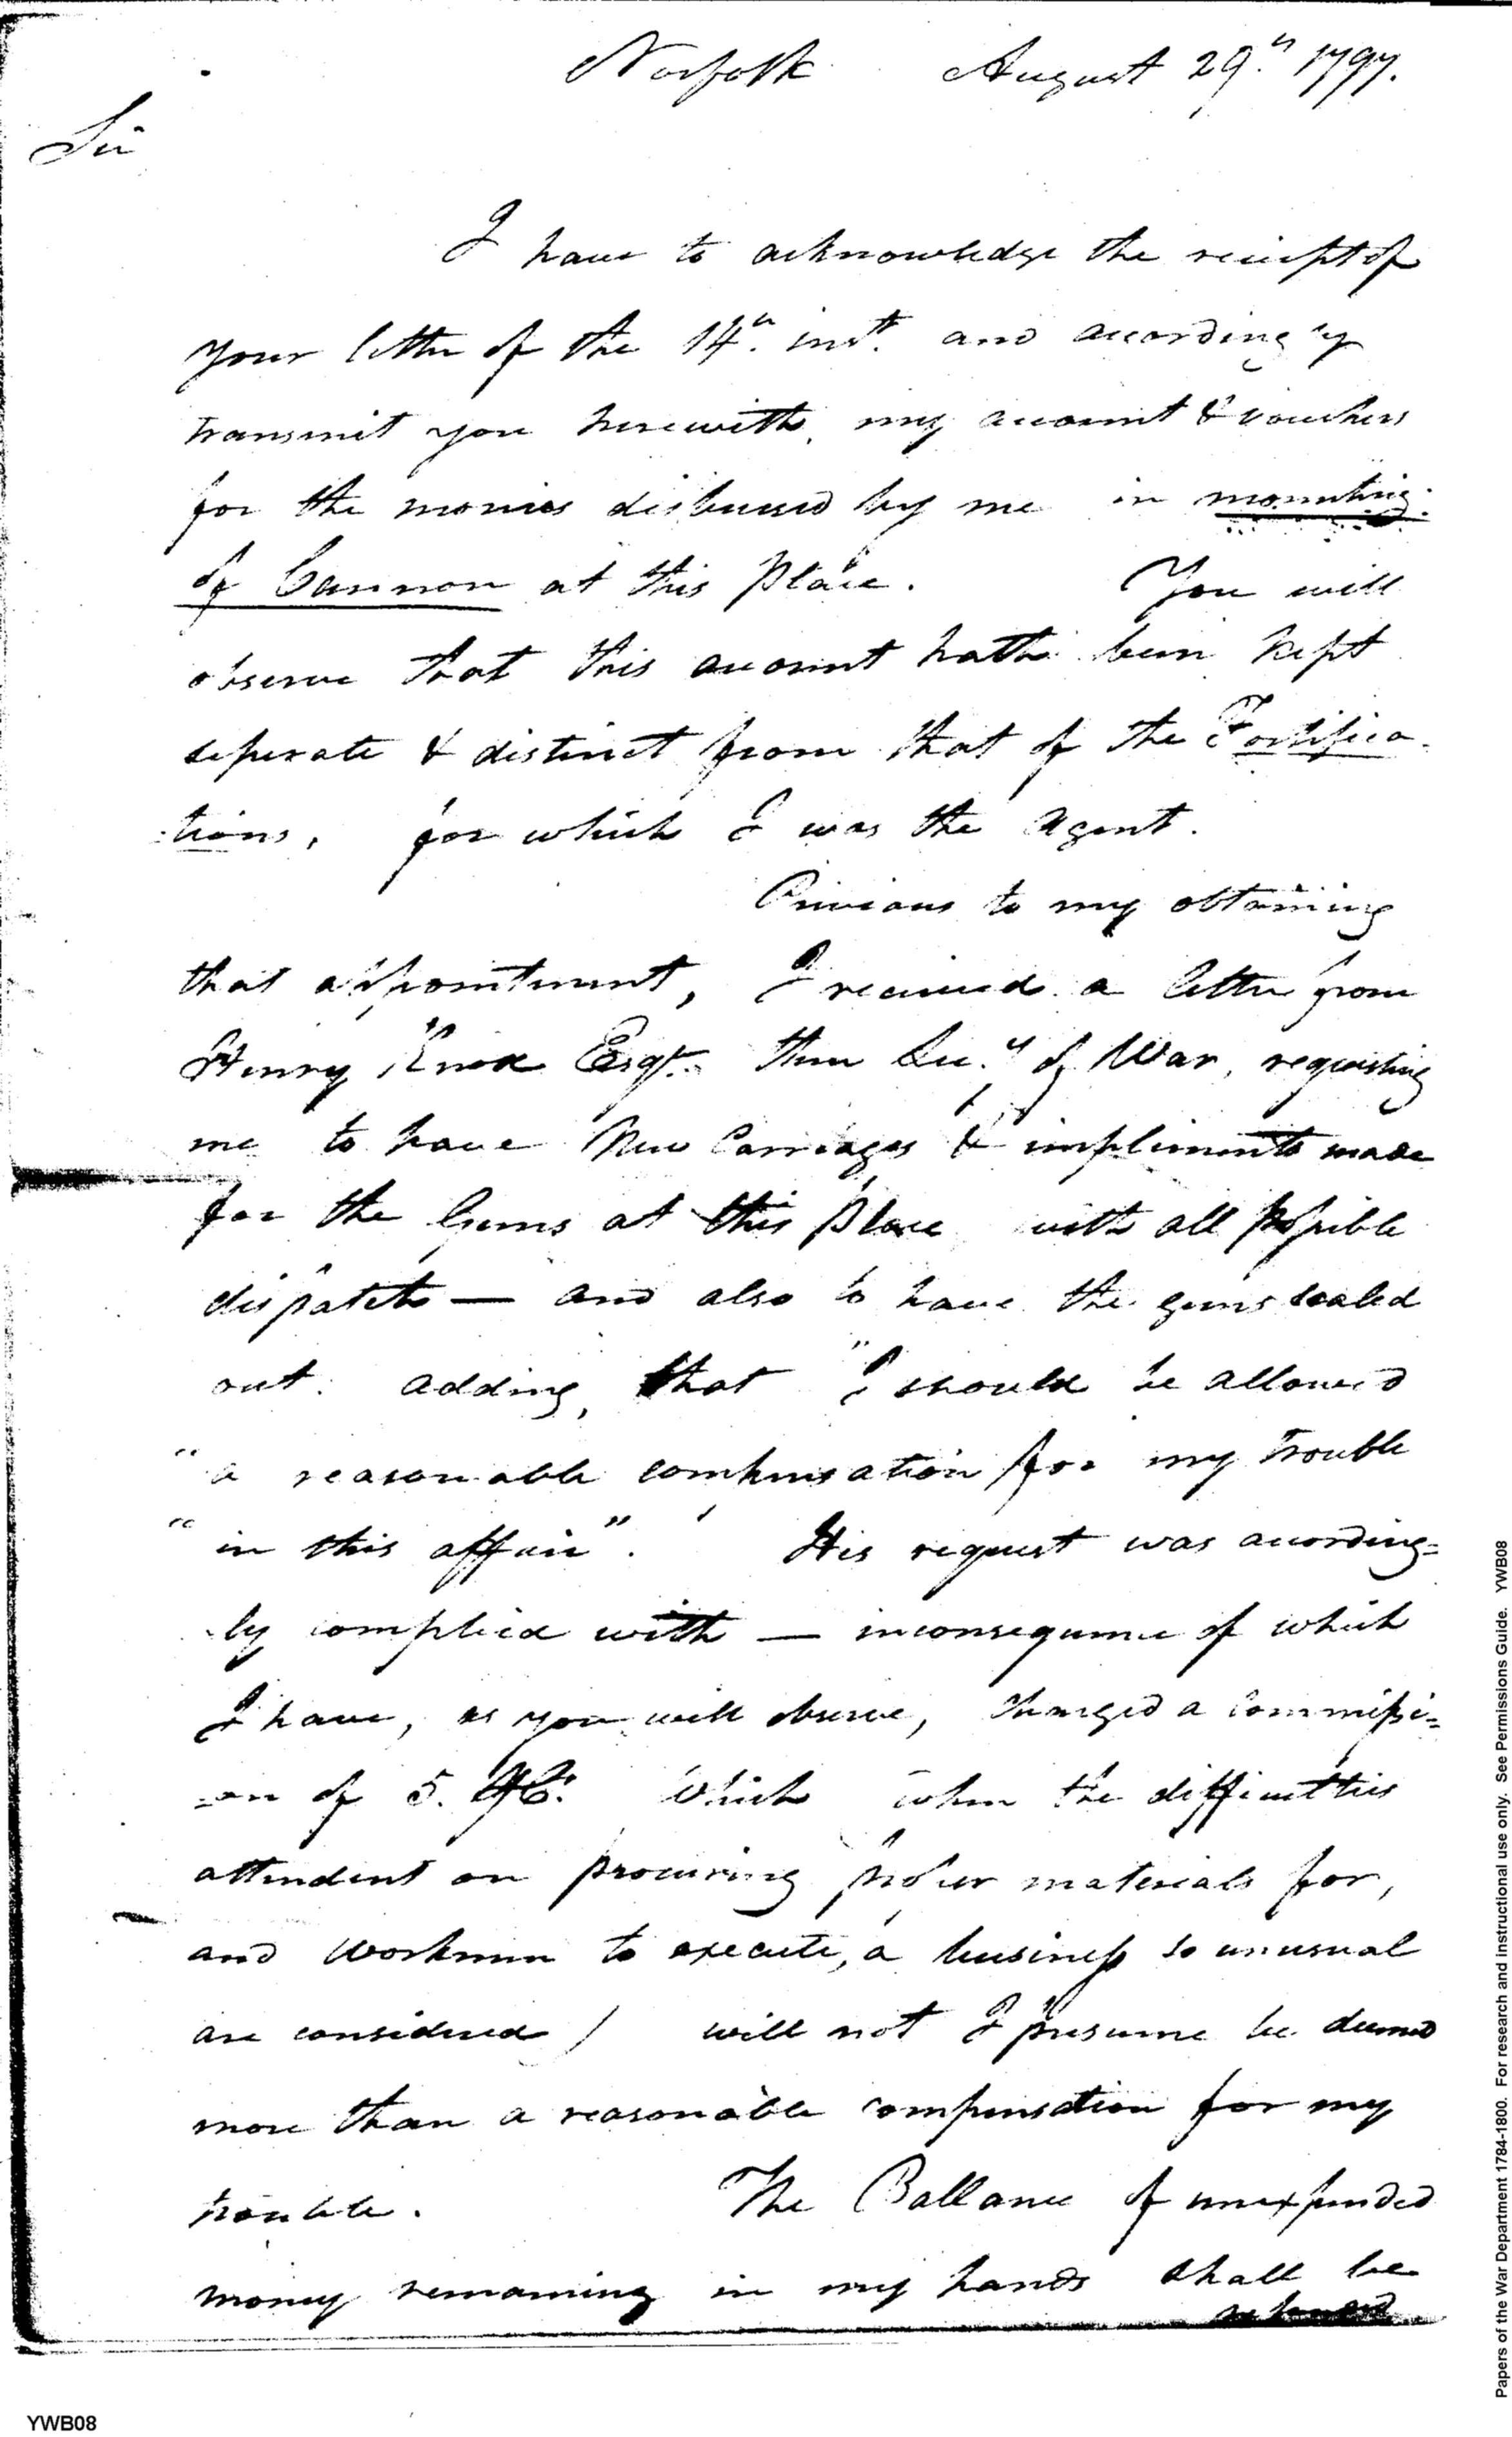 Norfolk August 29.th 1797.
Sir
I have to acknowledge the reciept of
your letter of the 14th. inst. and accordingly
transmit you herewith, my account & vouchers
for the monies disbursed by me in mounting
of Cannon at this place. You will
observe that this account hath been kept
seperate & distinct from that of the Fortifica-
tions, for which I was the agent.
Previous to my obtaining
that appointment, I received a letter from
Henry Knox Esqr. then Secy. of War, requesting
me to have New Carriages & impliments made
for the Guns at this place with all possible
dispatch — and also to have the guns scaled
out. adding, that "I should be allowed
"a reasonable compensation for my trouble
"in this affair". His request was according=
ly complied with — inconsequence of which
I have, as you will observe, charged a Commissi=
=on of 5. Ct. Which when the difficulties
attendent on procuring proper materials for,
and workmen to execute, a business so unusual
are considered / will not I presume be deemed
more than a reasonable compensation for my
trouble. The Ballance of unexpended
money remaining in my hands shall be
YWB08
Papers of the War Department 1784-1800. For research and instructional use only. See Permissions Guide. YWB08